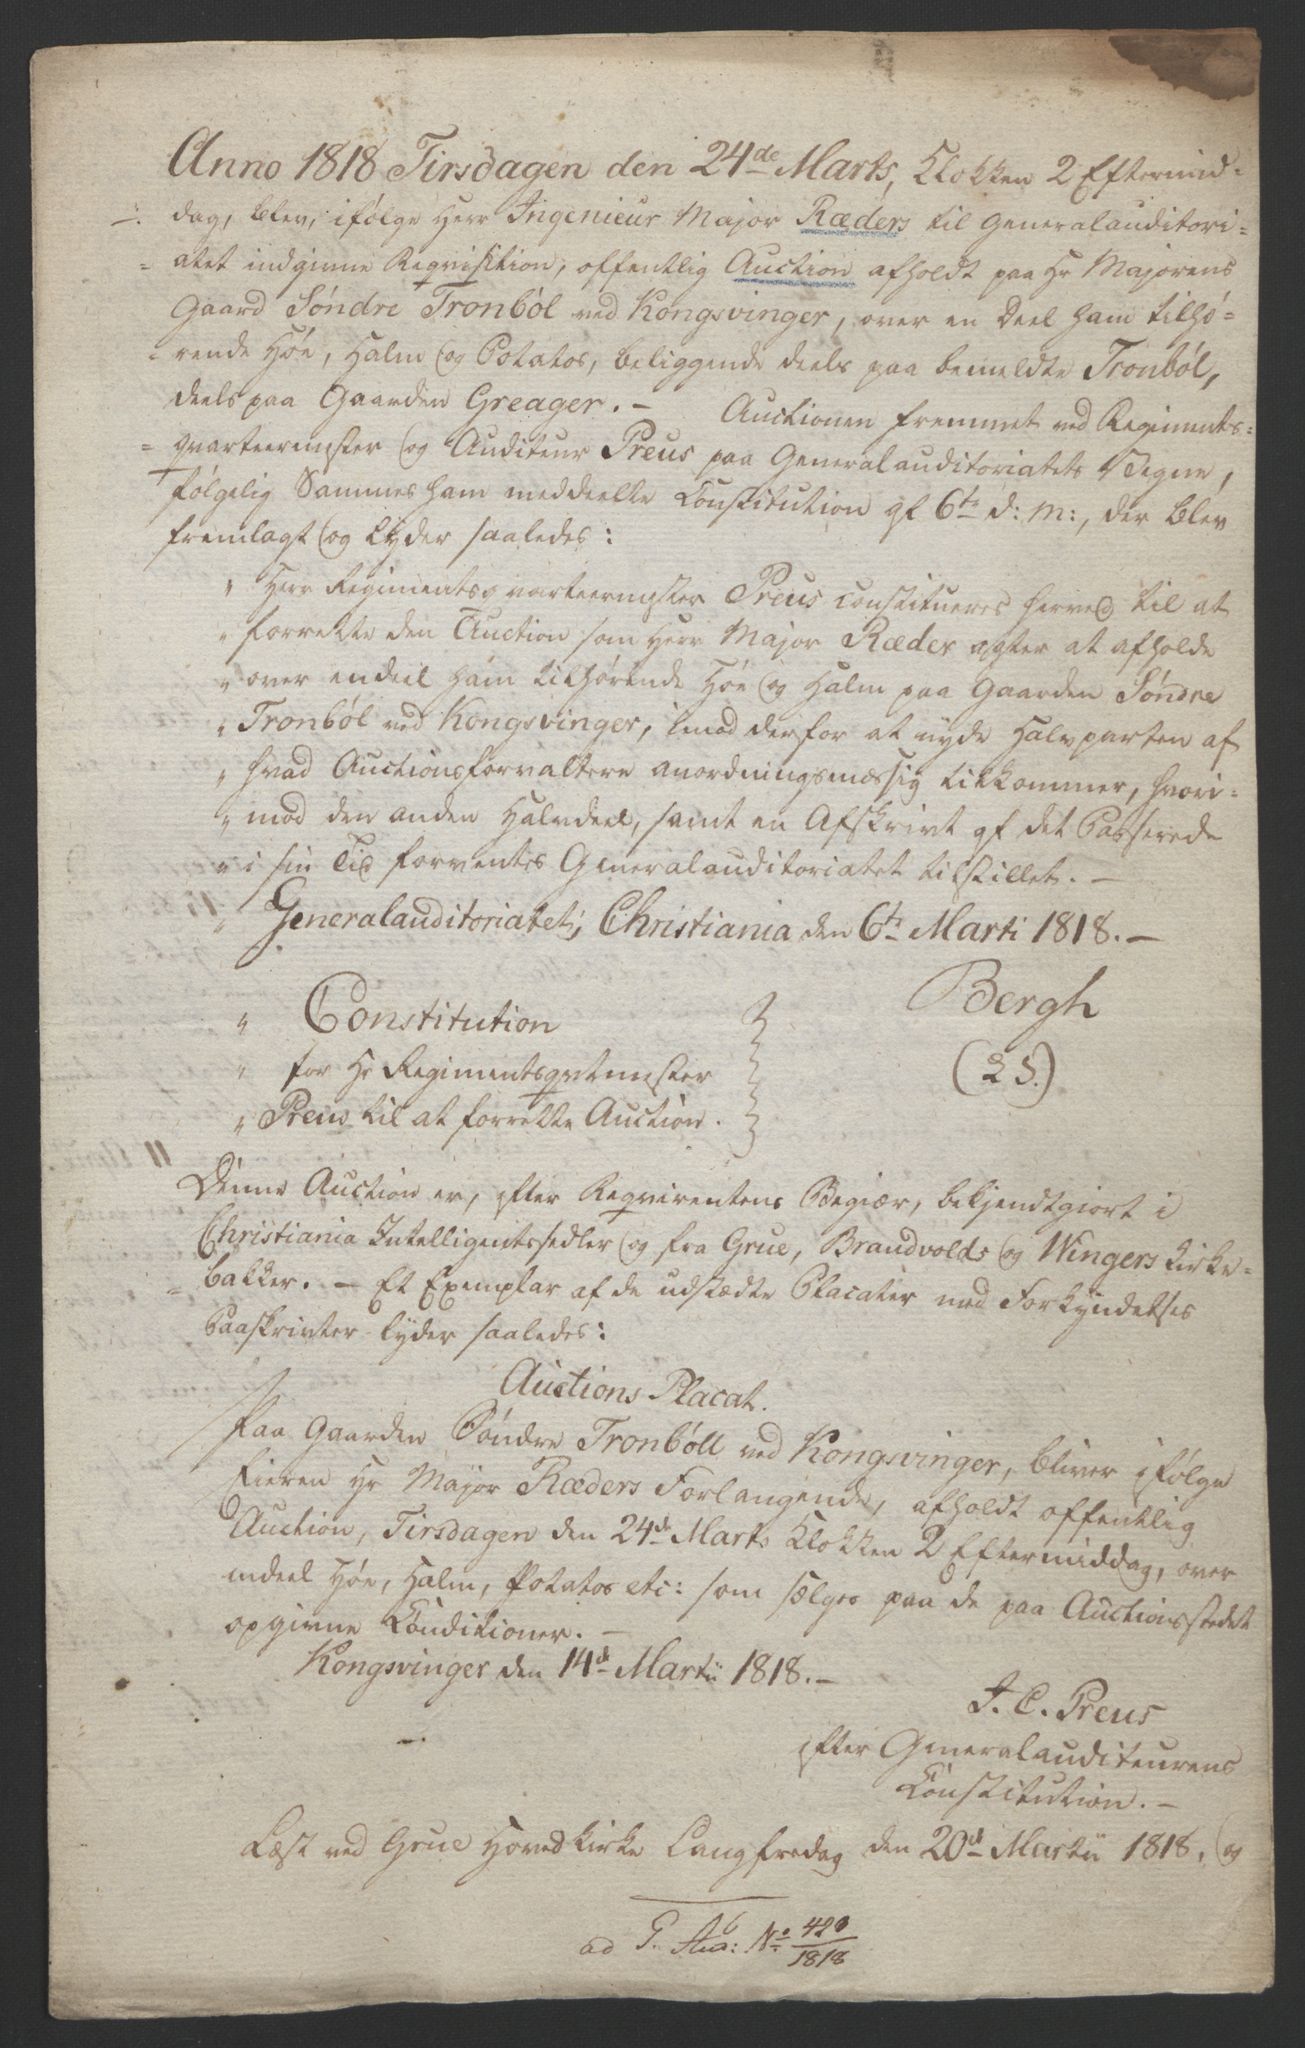 Anno 1818 Tirsdagen den 24de Marts, Klokken 2 Eftermid=
dag, blev, ifølge Herr Ingenieur Major Ræders til Generalauditori=
=atet indgivne Reqvisition, offentlig Auction afholdt paa Hr Majorens
Gaard Søndre Tronbøl ved Kongsvinger, over en Deel ham tilhø=
=rende Høe, Halm og Potatos, beliggende deels paa bemeldte Tronbøl,
deels paa Gaarden Greager. – Auctionen fremmet ved Regiments=
=qvarteermester og Auditeur Preus paa Generalauditoriatets Vegne,
følgelig Sammes ham meddeelte Constitution af 6te d: M:, der blev
fremlagt og lyder saaledes:
" Herr Regimentsqvarteermester Preus constitueres herved til at
" forrette den Auction som Herr Major Ræder agter at afholde
" over endeel ham tilhørende Høe og Halm paa Gaarden Søndre
" Tronbøl ved Kongsvinger, imod derfor at nyde Halvparten af
" hvad Auctionsforvaltere anordningsmæssig tilkommer, hvori=
" mod den anden Halvdeel, samt en Afskrivt af det Passerede
" i sin Tid forventes Generalauditoriatet tilstillet. –
" Generalauditoriatet, Christiania den 6te Marti 1818. –
Bergh
" Constitution
(L S.)
" for Hr Regimentsqvtmester
" Preus til at forrette Auction.
Denne Auction er, efter Reqvirentens Begiær, bekjendtgiort i
Christiania Intelligentssedler og fra Grue, Brandvolds og Wingers Kirke=
=bakker. – Et Exemplar af de udstædte Placater med Forkyndelses
Paaskrivter lyder saaledes:
Auctions Placat.
Paa Gaarden Søndre Tronbøll ved Kongsvinger, bliver ifølge
Eieren Hr Major Ræders Forlangende, afholdt offentlig
Auction, Tirsdagen den 24de Marts Klokken 2 Eftermiddag, over
endeel Høe, Halm, Potatos etc: som sælges paa de paa Auctionsstedet
opgivne Conditioner. –
Kongsvinger den 14de Martii 1818. –
J. C. Preus
efter Generalauditeurens
Constitution. –
Læst ved Grue Hovedkirke Langfredag den 20de Martii 1818, og
ad No 420
1818